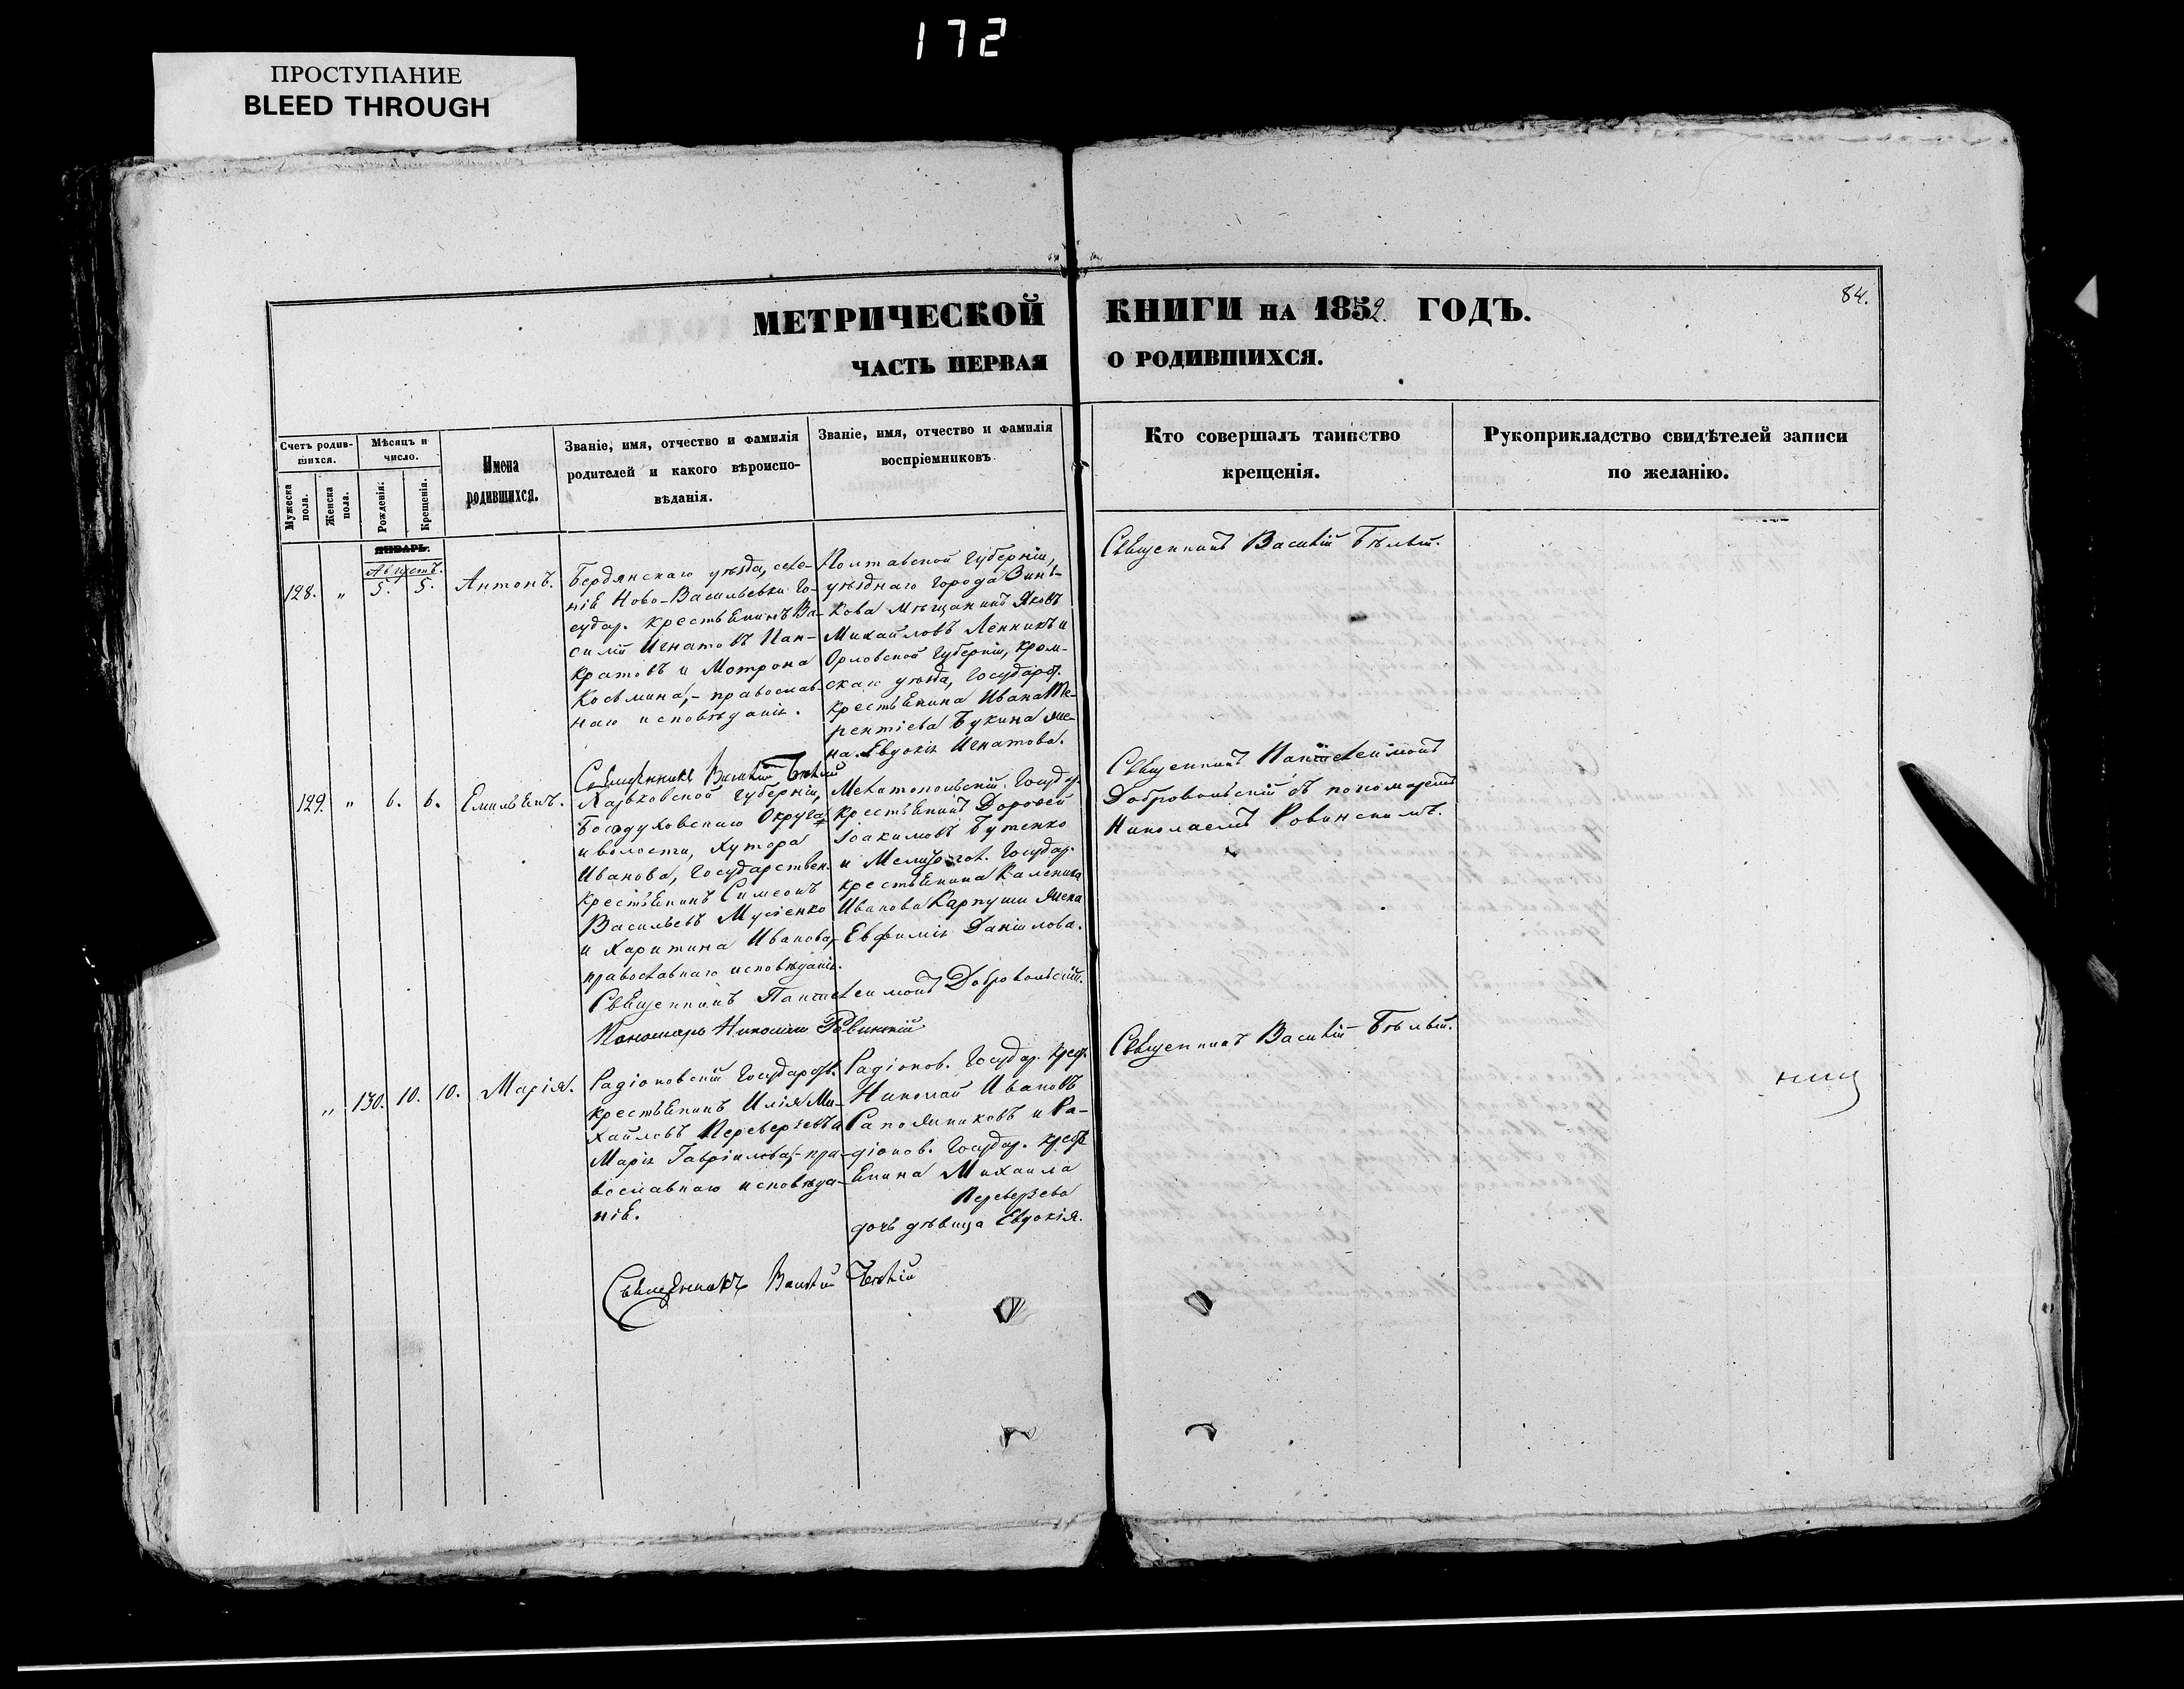 172
ПРОСТУПАНИЕ
BLEED THROUGH
84.
МЕТРИЧЕСКОЙ КНИГИ НА 1852 ГОДЪ.
ЧАСТЬ ПЕРВАЯ О РОДИВШИХСЯ.
Счетъ родив-
шихся.
Мужеска пола.
Женска пола.
Мѣсяцъ и
число.
Рожденія.
Крещенія.
Имена
родившихся.
Званіе, имя, отчество и фамилія
родителей и какого вѣроиспо-
вѣданія.
Званіе, имя, отчество и фамилія
воспріемниковъ
Кто совершалъ таинство
крещенія.
Рукоприкладство свидѣтелей записи
по желанію.
ЯНВАРЬ.
Августъ.
128. „ 5. 5. Антонъ.
Бердянскаго уѣзда, селе-
нія Ново-Васильевки Го-
судар. крестьянинъ Ва-
силій Игнатовъ Пан-
кратовъ и Мотрона
Косьмина,- православ-
наго исповѣданія.
Священникъ Василій Бѣлый
Полтавской Губерніи,
уѣзднаго города Зинь-
кова мѣщанинъ Яковъ
Михайловъ Ленникъ и
Орловской Губерніи, Кром-
скаго уѣзда, Государст.
крестьянина Ивана Те-
рентіева Букина же-
на Евдокія Игнатова.
Священникъ Василій Бѣлый.
129. „ 6. 6. Емиліанъ.
Харьковской Губерніи,
Богодуховскаго Округа
и волости, хутора
Иванова, Государствен.
крестьянинъ Симеонъ
Васильевъ Мусіенко
и Харитина Иванова,
православнаго исповѣданія.
Священникъ Пантелеимонъ Добровольскій.
Пономарь Николай Ровинскій
Мелитопольскій Государ.
крестьянинъ Дороѳей
Іоакимовъ Бутенко
и Мелитопол. Государ.
крестьянина Каленика
Иванова Карпуши жена
Евфимія Даніилова.
Священникъ Пантелеимонъ
Добровольскій съ пономаремъ
Николаемъ Ровинскимъ.
„ 130. 10. 10. Марія.
Радіоновскій Государств.
крестьянинъ Илія Ми-
хайловъ Переверзевъ и
Марія Гавріилова,- пра-
вославнаго исповѣда-
нія.
Священникъ Василій Бѣлый
Радіонов. Государ. крест.
Николай Ивановъ
Сапожниковъ и Ра-
діонов. Государ. крест-
янина Михаила
Переверзева
дочь дѣвица Евдокія.
Священникъ Василій Бѣлый.